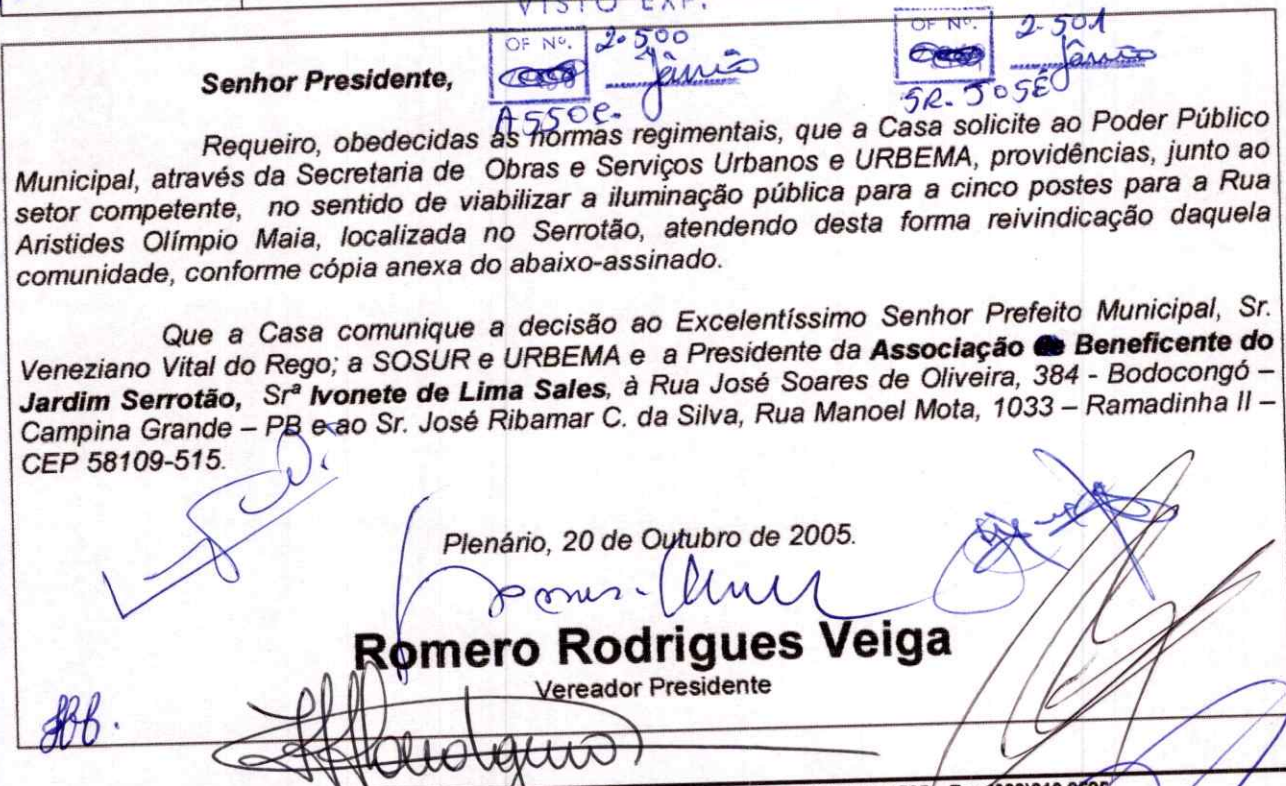 VISTO EXP.
OF Nº. 2.500 OF Nº. 2.501
Jânio Jânio
Senhor Presidente,
ASSOC. SR. JOSÉ
Requeiro, obedecidas as normas regimentais, que a Casa solicite ao Poder Público
Municipal, através da Secretaria de Obras e Serviços Urbanos e URBEMA, providências, junto ao
setor competente, no sentido de viabilizar a iluminação pública para a cinco postes para a Rua
Aristides Olímpio Maia, localizada no Serrotão, atendendo desta forma reivindicação daquela
comunidade, conforme cópia anexa do abaixo-assinado.
Que a Casa comunique a decisão ao Excelentíssimo Senhor Prefeito Municipal, Sr.
Veneziano Vital do Rego; a SOSUR e URBEMA e a Presidente da Associação Beneficente do
Jardim Serrotão, Srª Ivonete de Lima Sales, à Rua José Soares de Oliveira, 384 - Bodocongó –
Campina Grande – PB e ao Sr. José Ribamar C. da Silva, Rua Manoel Mota, 1033 – Ramadinha II –
CEP 58109-515.
Plenário, 20 de Outubro de 2005.
Romero Rodrigues Veiga
Vereador Presidente